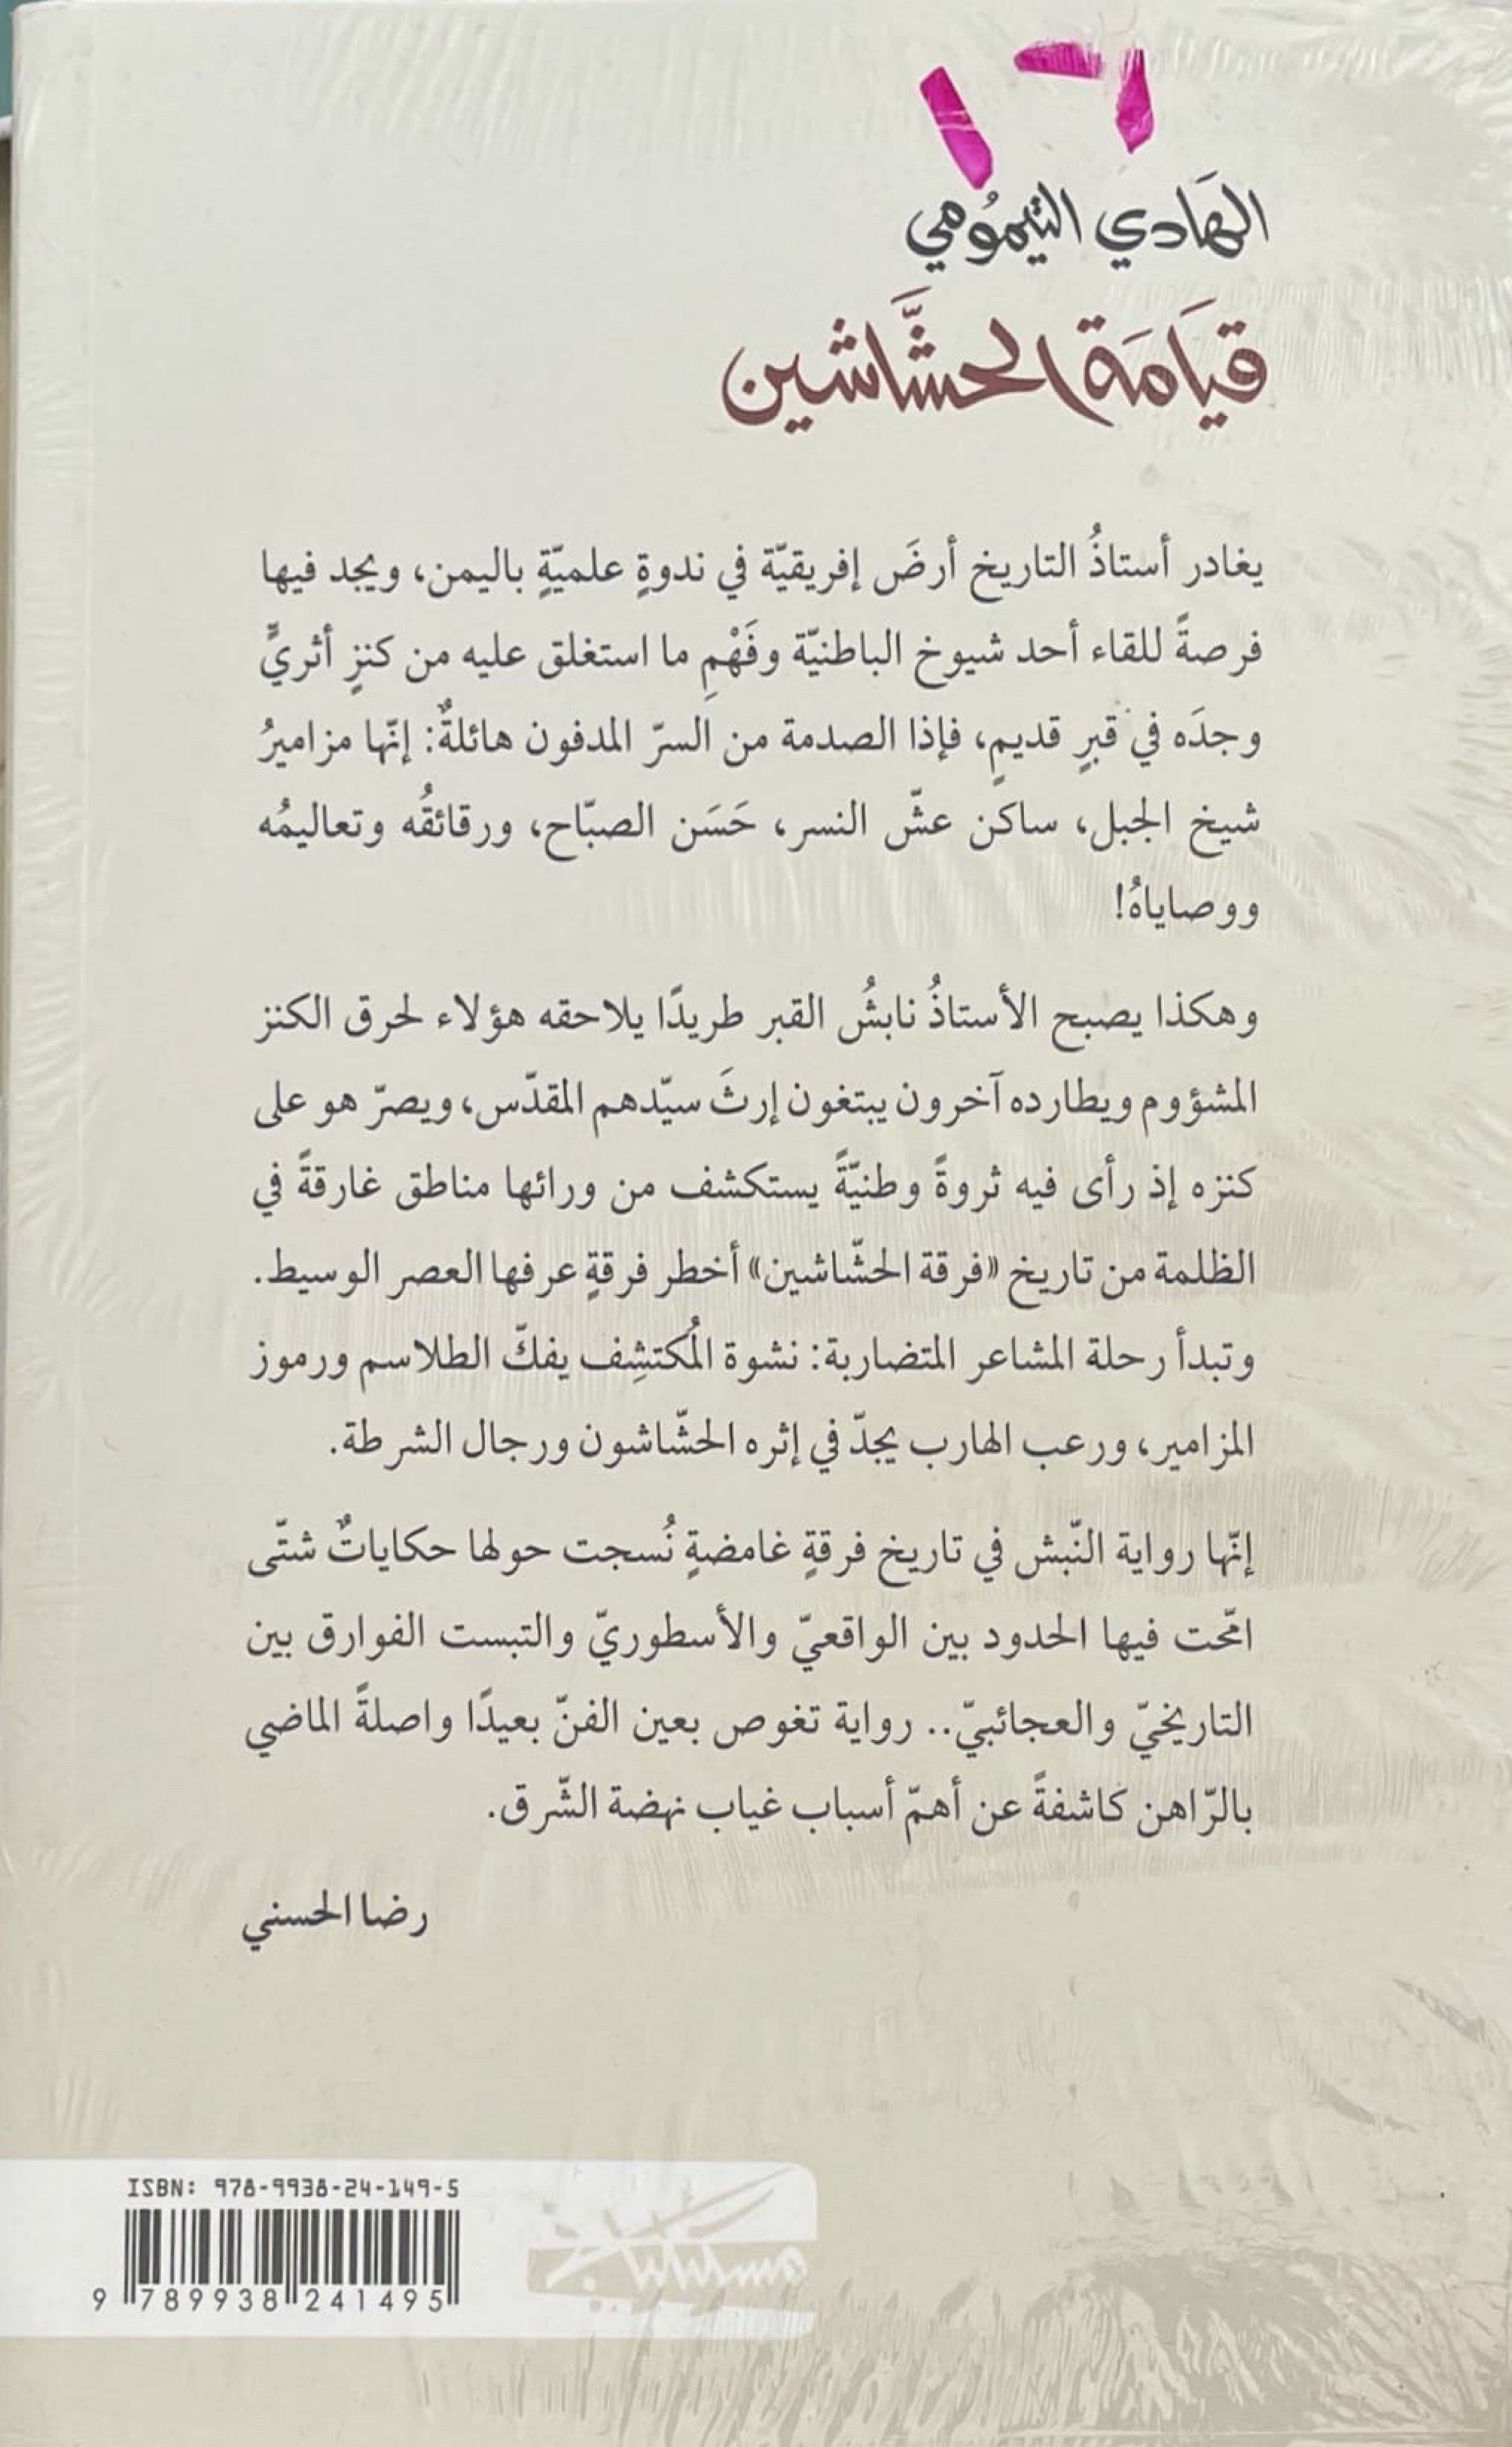 ١٦
الهَادي التيمُومي
قيَامَة الحشَّاشين
يغادر أستاذُ التاريخ أرضَ إفريقيّة في ندوةٍ علميّةٍ باليمن، ويجد فيها
فرصةً للقاء أحد شيوخ الباطنيّة وفَهْمِ ما استغلق عليه من كنزٍ أثريٍّ
وجدَه في قبرٍ قديمٍ، فإذا الصدمة من السرّ المدفون هائلةٌ: إنّها مزاميرُ
شيخ الجبل، ساكن عشّ النسر، حَسَن الصبّاح، ورقائقُه وتعاليمُه
ووصاياهُ!
وهكذا يصبح الأستاذُ نابشُ القبر طريدًا يلاحقه هؤلاء لحرق الكنز
المشؤوم ويطارده آخرون يبتغون إرثَ سيّدهم المقدّس، ويصرّ هو على
كنزه إذ رأى فيه ثروةً وطنيّةً يستكشف من ورائها مناطق غارقةً في
الظلمة من تاريخ «فرقة الحشّاشين» أخطر فرقةٍ عرفها العصر الوسيط.
وتبدأ رحلة المشاعر المتضاربة: نشوة المُكتشِف يفكّ الطلاسم ورموز
المزامير، ورعب الهارب يجدّ في إثره الحشّاشون ورجال الشرطة.
إنّها رواية النّبش في تاريخ فرقةٍ غامضةٍ نُسجت حولها حكاياتٌ شتّى
امّحت فيها الحدود بين الواقعيّ والأسطوريّ والتبست الفوارق بين
التاريخيّ والعجائبيّ.. رواية تغوص بعين الفنّ بعيدًا واصلةً الماضي
بالرّاهن كاشفةً عن أهمّ أسباب غياب نهضة الشّرق.
رضا الحسني
ISBN: 978-9938-24-149-5
9 789938 241495